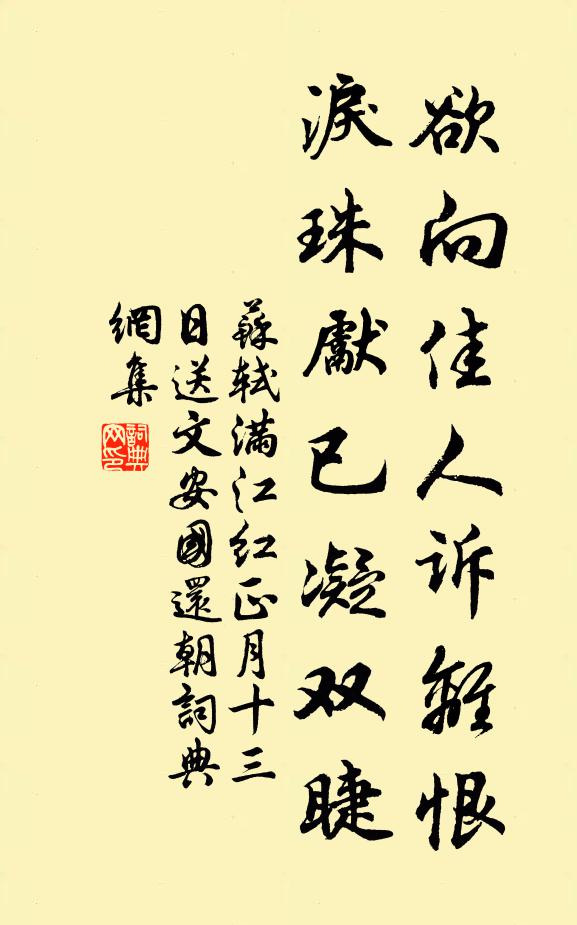 欲向佳人诉離恨
淚珠獻已凝双睫
蘇軾满江红正月十三
日送文安國還朝詞典
網集
詞典
网印